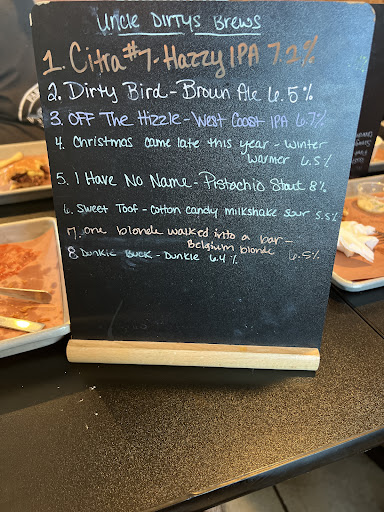 Uncle Dirtys Brews
1. Citra #7. Hazzy IPA 7.2%
2. Dirty Bird - Brown Ale 6.5%
3. OFF The Hizzle - West Coast IPA 6.7%
4. Christmas came late this year - Winter
Warmer 6.5%
5. I Have No Name - Pistachio Stout 8%
6. Sweet Toof - Cotton candy milkshake sour 5.5%
7. One blonde walked into a bar -
Belgium blonde 6.5%
8. Dunkie Buck - Dunkle 6.4%